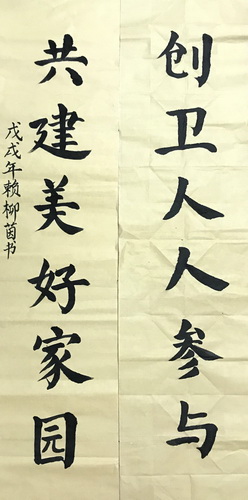 创卫人人参与
共建美好家园
戊戌年赖柳茵书